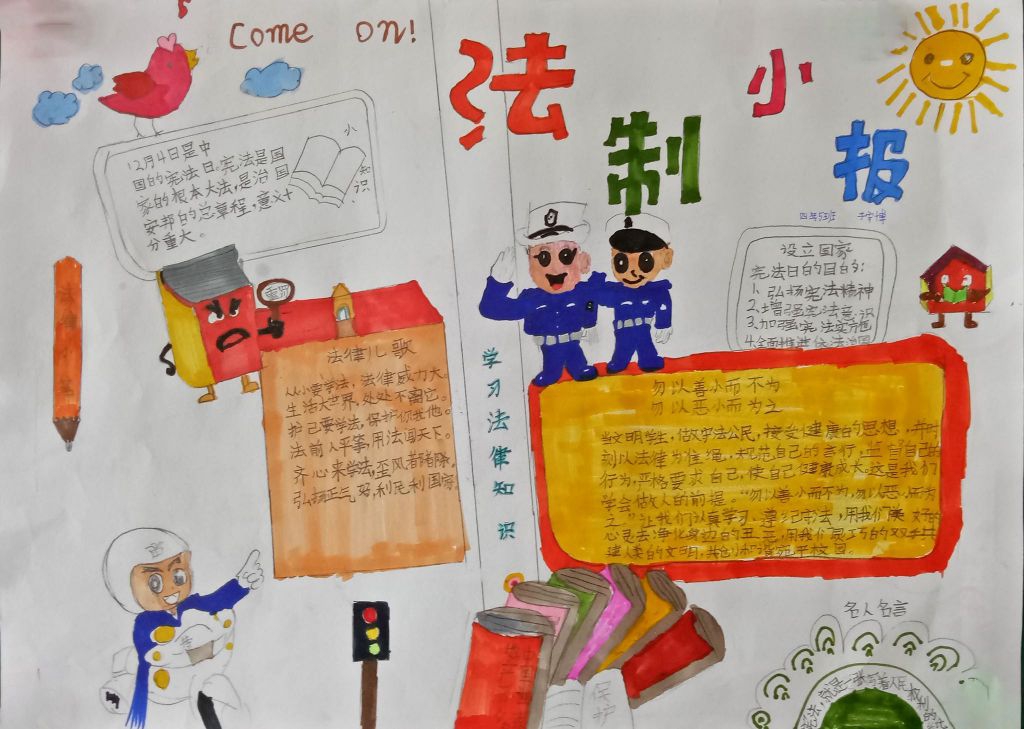 Come on!
法制
小报
四年5班
12月4日是中
国的宪法日。宪法是国
家的根本大法,是治国
安邦的总章程,意义十
分重大。
小知识
设立国家
宪法日的目的:
1、弘扬宪法精神
2、增强宪法意识
3、加强宪法实施
4、全面推进依法治国
法律儿歌
从小要学法,法律威力大。
生活大世界,处处不离它。
护己要学法,保护你我他。
法前人平等,用法闯天下。
齐心来学法,歪风着除。
弘扬正气好,利民利国家
学习法律知识
勿以善小而不为
勿以恶小而为之
当文明学生,做守法公民,接受健康的思想,并时
刻以法律为准绳,规范自己的言行,监督自己的
行为,严格要求自己,使自己健康成长。这是我们
学会做人的前提。“勿以善小而不为,勿以恶小而为
之”让我们认真学习、遵纪守法,用我们美好的
心灵去净化身边的丑恶,用我们灵巧的双手共
建人类的文明,共创和谐校园。
保护
名人名言
宪法,就是一张写着人民权利的